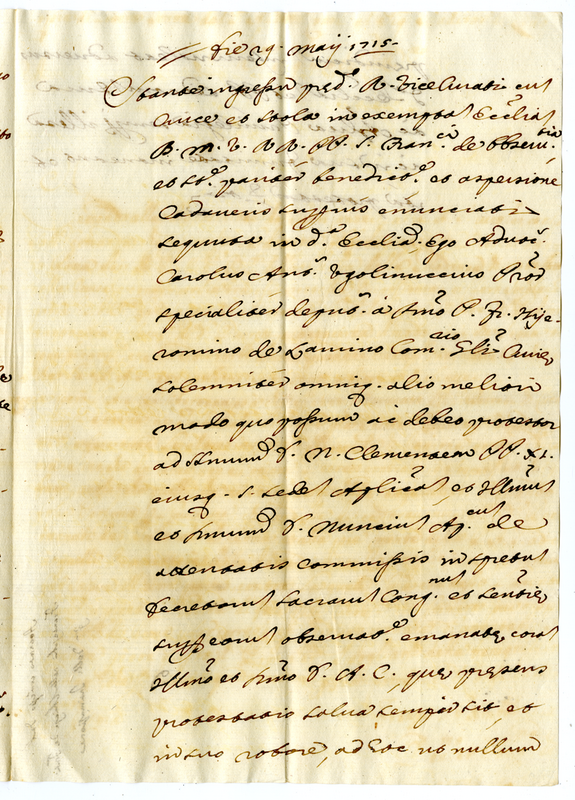 Die 29. Maij 1715
Stante ingressu pred.i R. Vice Curati cu
Cruce et Stola in exempta Ecclia
B. M. V. RR. PP. S. Franc.ci de Observ.tia
et st.e pariter benedict.e et aspersione
Cadaveris supius enunciati
sequuta in d.a Ecclia, Ego Advoc.
Carolus Ant. Ugolinuccius Pror
specialiter deput. à Rmo P. Fr. Hije-
ronimo de Lamino Com.rio Gli Curiæ
solemniter omniq. alio meliori
modo quo possum ac debeo protestor
ad SSmum D. N. Clementem PP. XI.
eiusq. S. Sedem Aplicã, et Illmum
et Rmum D. Nuncium Ap.cum de
attentatis commissis in spretum
Decretorum Sacrarum Cong.num et sentiæ
super eorum observat.e emanatæ coram
Illmo et Rmo D. A. C. quæ præsens
protestatio salva semper sit, et
in suo robore, ad hoc ut nullum